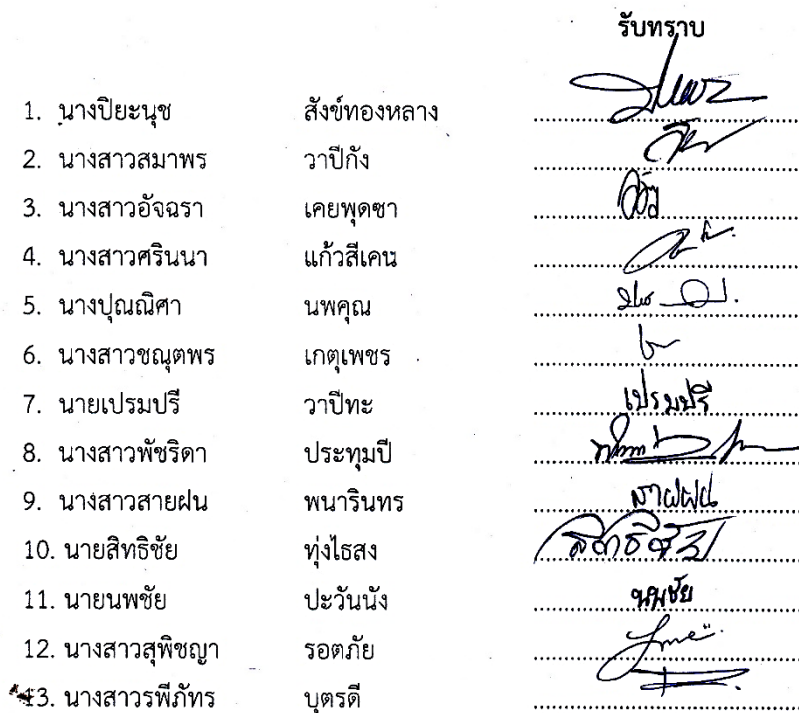 รับทราบ
1. นางปิยะนุช สังข์ทองหลาง
2. นางสาวสมาพร วาปีกัง
3. นางสาวอัจฉรา เคยพุดซา
4. นางสาวศรินนา แก้วสีเคน
5. นางปุณณิศา นพคุณ
6. นางสาวชณุตพร เกตุเพชร
7. นายเปรมปรี วาปีทะ เปรมปรี
8. นางสาวพัชริดา ประทุมปี
9. นางสาวสายฝน พนารินทร สายฝน
10. นายสิทธิชัย ทุ่งไธสง สิทธิชัย
11. นายนพชัย ปะวันนัง นพชัย
12. นางสาวสุพิชญา รอตภัย
13. นางสาวรพีภัทร บุตรดี